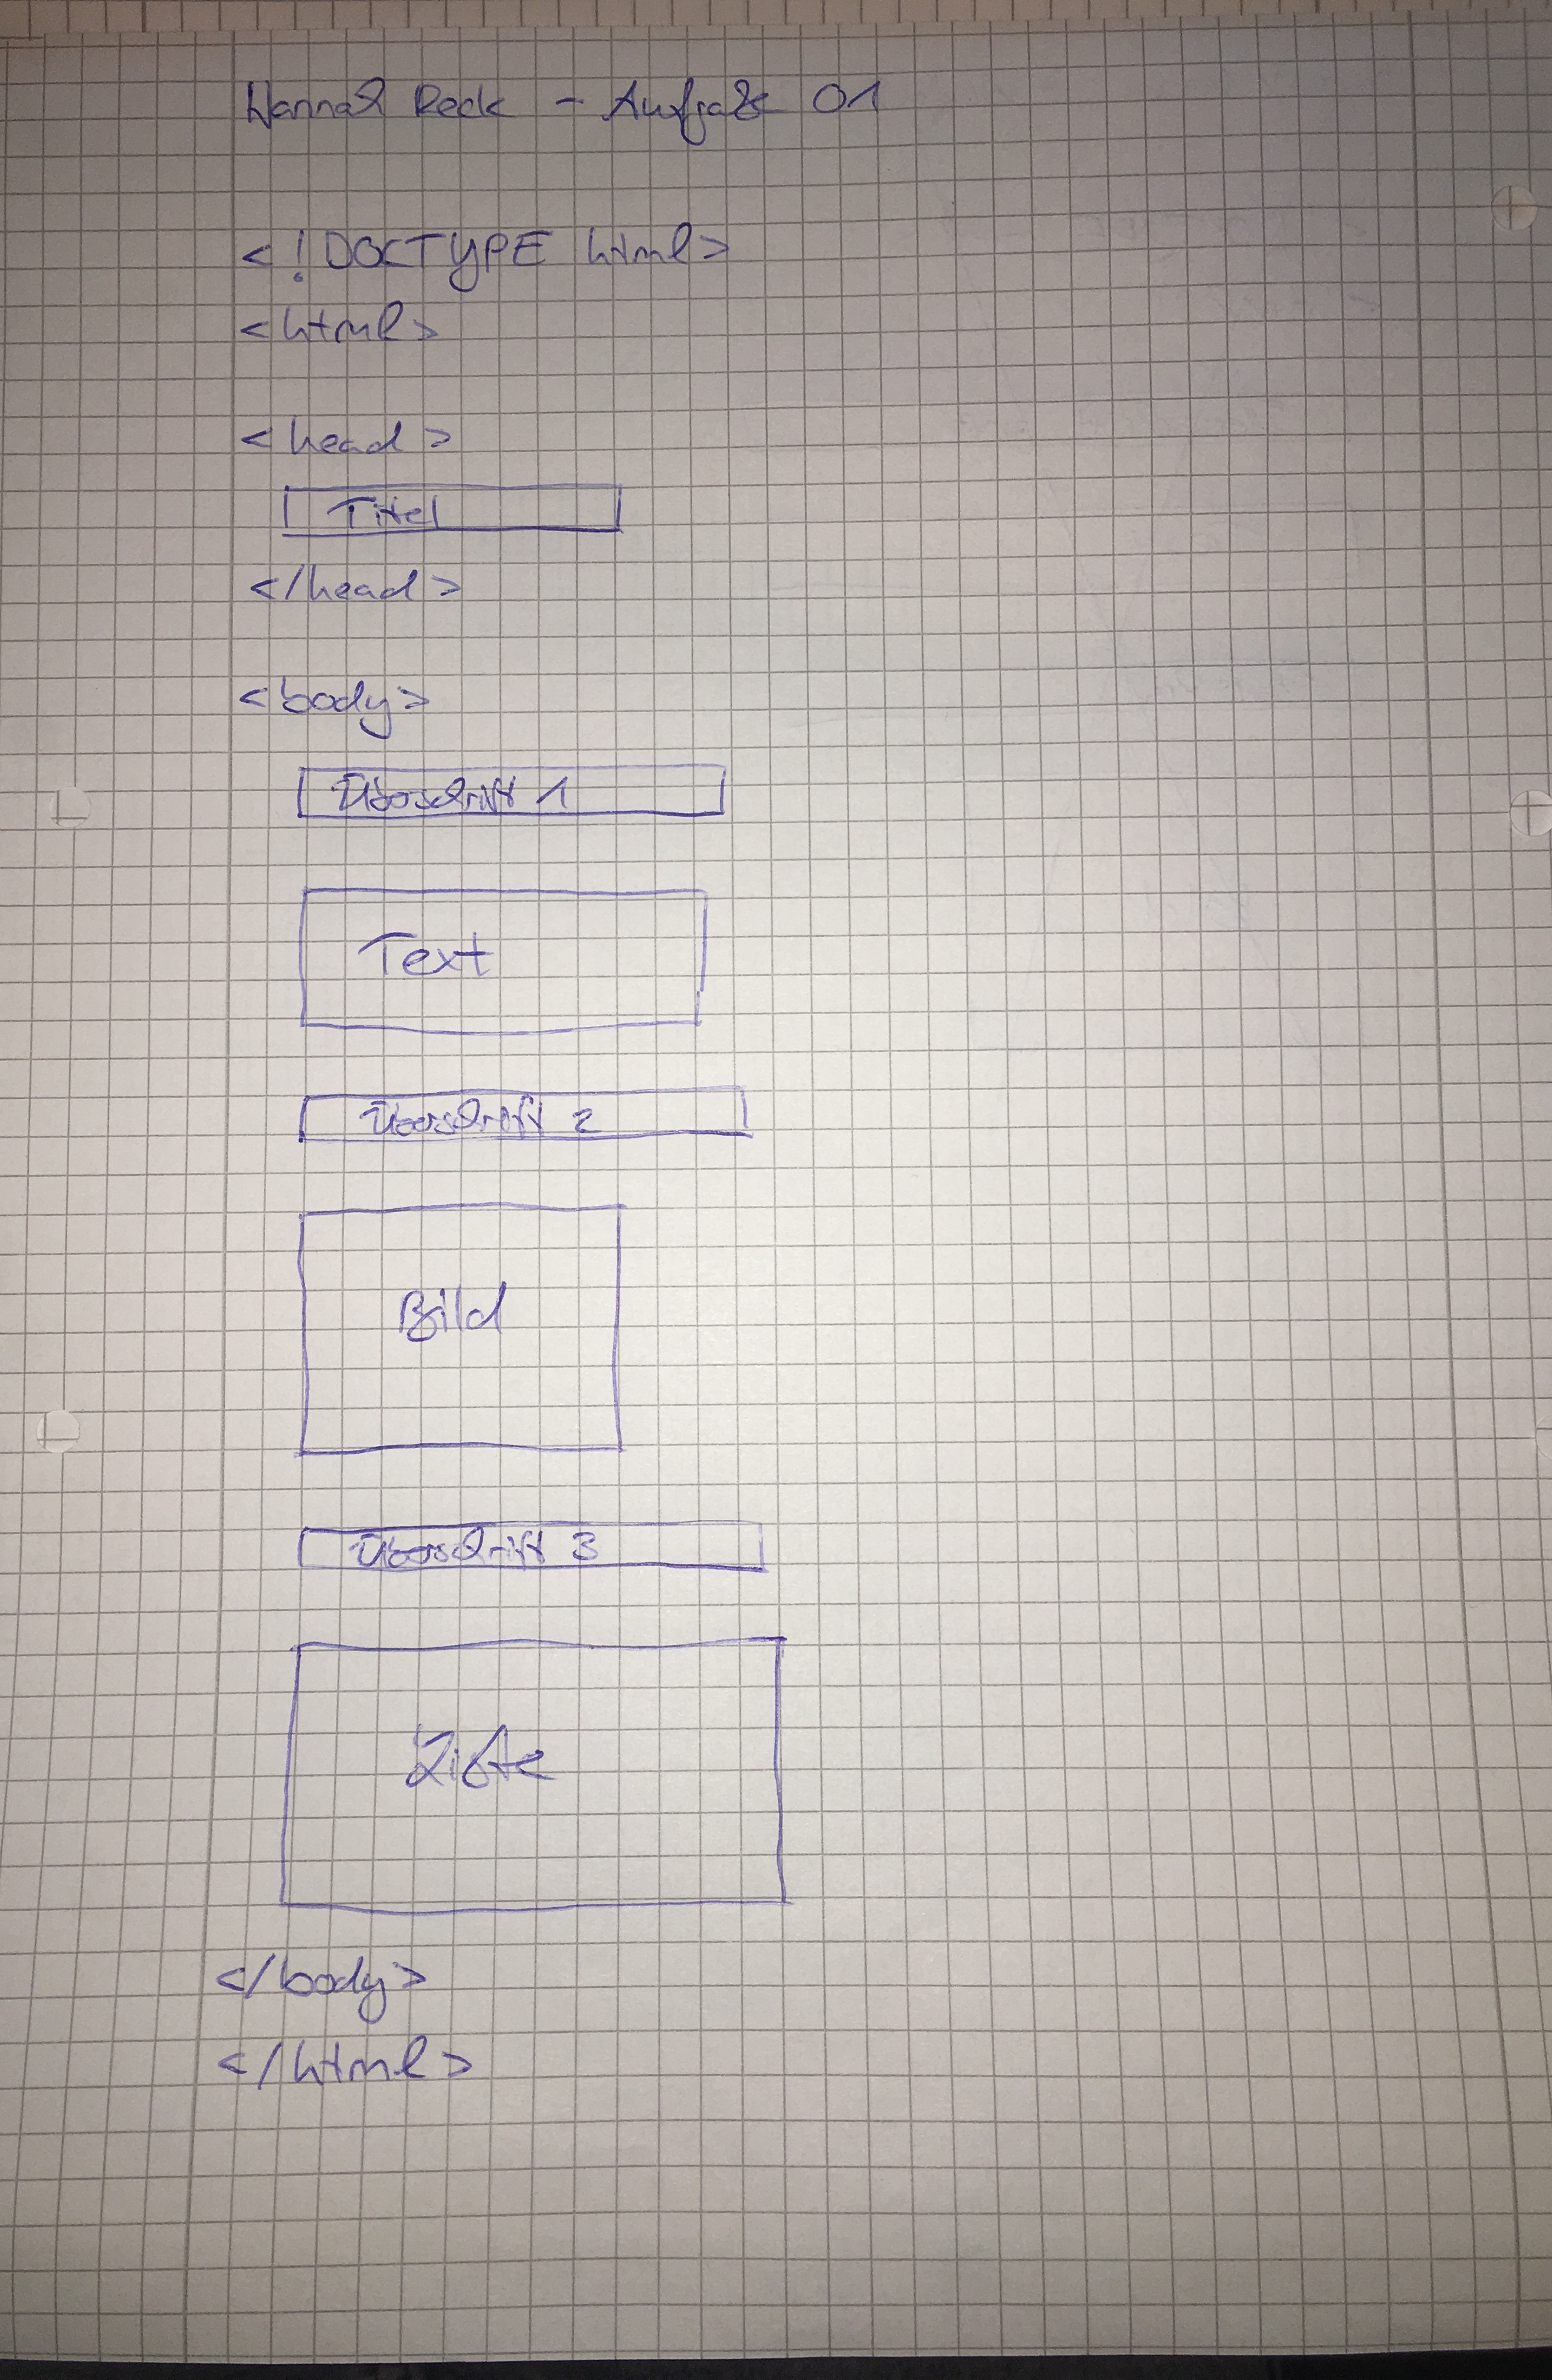 Hannah Reck - Aufgabe 01
<!DOCTYPE html>
<html>
<head>
Titel
</head>
<body>
Überschrift 1
Text
Überschrift 2
Bild
Überschrift 3
Liste
</body>
</html>